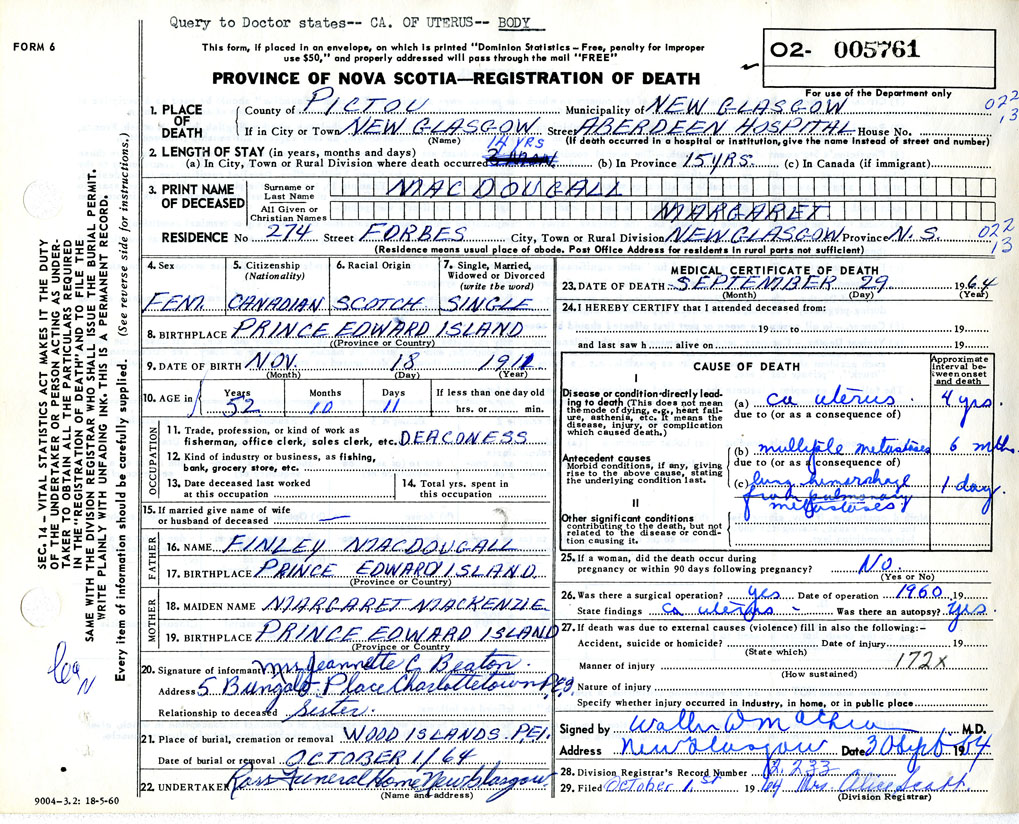 Query to Doctor states-- CA. OF UTERUS-- BODY
FORM 6
This form, if placed in an envelope, on which is printed "Dominion Statistics – Free, penalty for improper
use $50," and properly addressed will pass through the mail "FREE"
O2- 005761
For use of the Department only
PROVINCE OF NOVA SCOTIA—REGISTRATION OF DEATH
SEC. 14 – VITAL STATISTICS ACT MAKES IT THE DUTY
OF THE UNDERTAKER OR PERSON ACTING AS UNDER-
TAKER TO OBTAIN ALL THE PARTICULARS REQUIRED
IN THE "REGISTRATION OF DEATH" AND TO FILE THE
SAME WITH THE DIVISION REGISTRAR WHO SHALL ISSUE THE BURIAL PERMIT.
WRITE PLAINLY WITH UNFADING INK. THIS IS A PERMANENT RECORD.
Every item of information should be carefully supplied. (See reverse side for instructions.)
1. PLACE OF DEATH
County of PICTOU Municipality of NEW GLASGOW
022
13
If in City or Town NEW GLASGOW Street ABERDEEN HOSPITAL House No.
(Name) (If death occurred in a hospital or institution, give the name instead of street and number)
2. LENGTH OF STAY (in years, months and days)
14 YRS
(a) In City, Town or Rural Division where death occurred (b) In Province 15 YRS. (c) In Canada (if immigrant)
3. PRINT NAME OF DECEASED
Surname or Last Name MACDOUGALL
All Given or Christian Names MARGARET
RESIDENCE No 274 Street FORBES City, Town or Rural Division NEW GLASGOW Province N.S.
022
13
(Residence means usual place of abode. Post Office Address for residents in rural parts not sufficient)
4. Sex
FEM.
5. Citizenship (Nationality)
CANADIAN
6. Racial Origin
SCOTCH
7. Single, Married, Widowed or Divorced (write the word)
SINGLE
8. BIRTHPLACE PRINCE EDWARD ISLAND
(Province or Country)
9. DATE OF BIRTH NOV. 18 1911
(Month) (Day) (Year)
10. AGE in
Years Months Days If less than one day old
52 10 11 hrs. or min.
OCCUPATION
11. Trade, profession, or kind of work as
fisherman, office clerk, sales clerk, etc. DEACONESS
12. Kind of industry or business, as fishing,
bank, grocery store, etc.
13. Date deceased last worked
at this occupation
14. Total yrs. spent in
this occupation
15. If married give name of wife
or husband of deceased —
FATHER
16. NAME FINLEY MACDOUGALL
17. BIRTHPLACE PRINCE EDWARD ISLAND
(Province or Country)
MOTHER
18. MAIDEN NAME MARGARET MACKENZIE
19. BIRTHPLACE PRINCE EDWARD ISLAND
(Province or Country)
20. Signature of informant Mrs Jeannette C. Beaton.
Address 5 Bungalo Place Charlottetown P.E.I.
Relationship to deceased Sister.
21. Place of burial, cremation or removal WOOD ISLANDS. P.E.I.
Date of burial or removal OCTOBER 1/64
22. UNDERTAKER Ross Funeral Home New Glasgow
(Name and address)
9004-3.2: 18-5-60
MEDICAL CERTIFICATE OF DEATH
23. DATE OF DEATH SEPTEMBER 29 1964
(Month) (Day) (Year)
24. I HEREBY CERTIFY that I attended deceased from:
19 to 19
and last saw h alive on 19
CAUSE OF DEATH
Approximate interval between onset and death
I
Disease or condition directly lead-
ing to death (This does not mean
the mode of dying, e.g., heart fail-
ure, asthenia, etc. It means the
disease, injury, or complication
which caused death.)
(a) ca uterus 4 yrs.
due to (or as a consequence of)
Antecedent causes
Morbid conditions, if any, giving
rise to the above cause, stating
the underlying condition last.
(b) multiple metastases 6 mths.
due to (or as a consequence of)
(c) lung hemorrhage 1 day.
from pulmonary
metastases
II
Other significant conditions
contributing to the death, but not
related to the disease or condi-
tion causing it.
25. If a woman, did the death occur during
pregnancy or within 90 days following pregnancy? No.
(Yes or No)
26. Was there a surgical operation? yes Date of operation 1960 19
State findings ca uterus - Was there an autopsy? yes
27. If death was due to external causes (violence) fill in also the following:–
Accident, suicide or homicide? Date of injury 19
(State which)
Manner of injury 172x
(How sustained)
Nature of injury
Specify whether injury occurred in industry, in home, or in public place
Signed by M.D.
Address New Glasgow Date 30 Sept 1964
28. Division Registrar's Record Number 233
29. Filed October 1st 1964 Mrs. Alice Scott.
(Division Registrar)